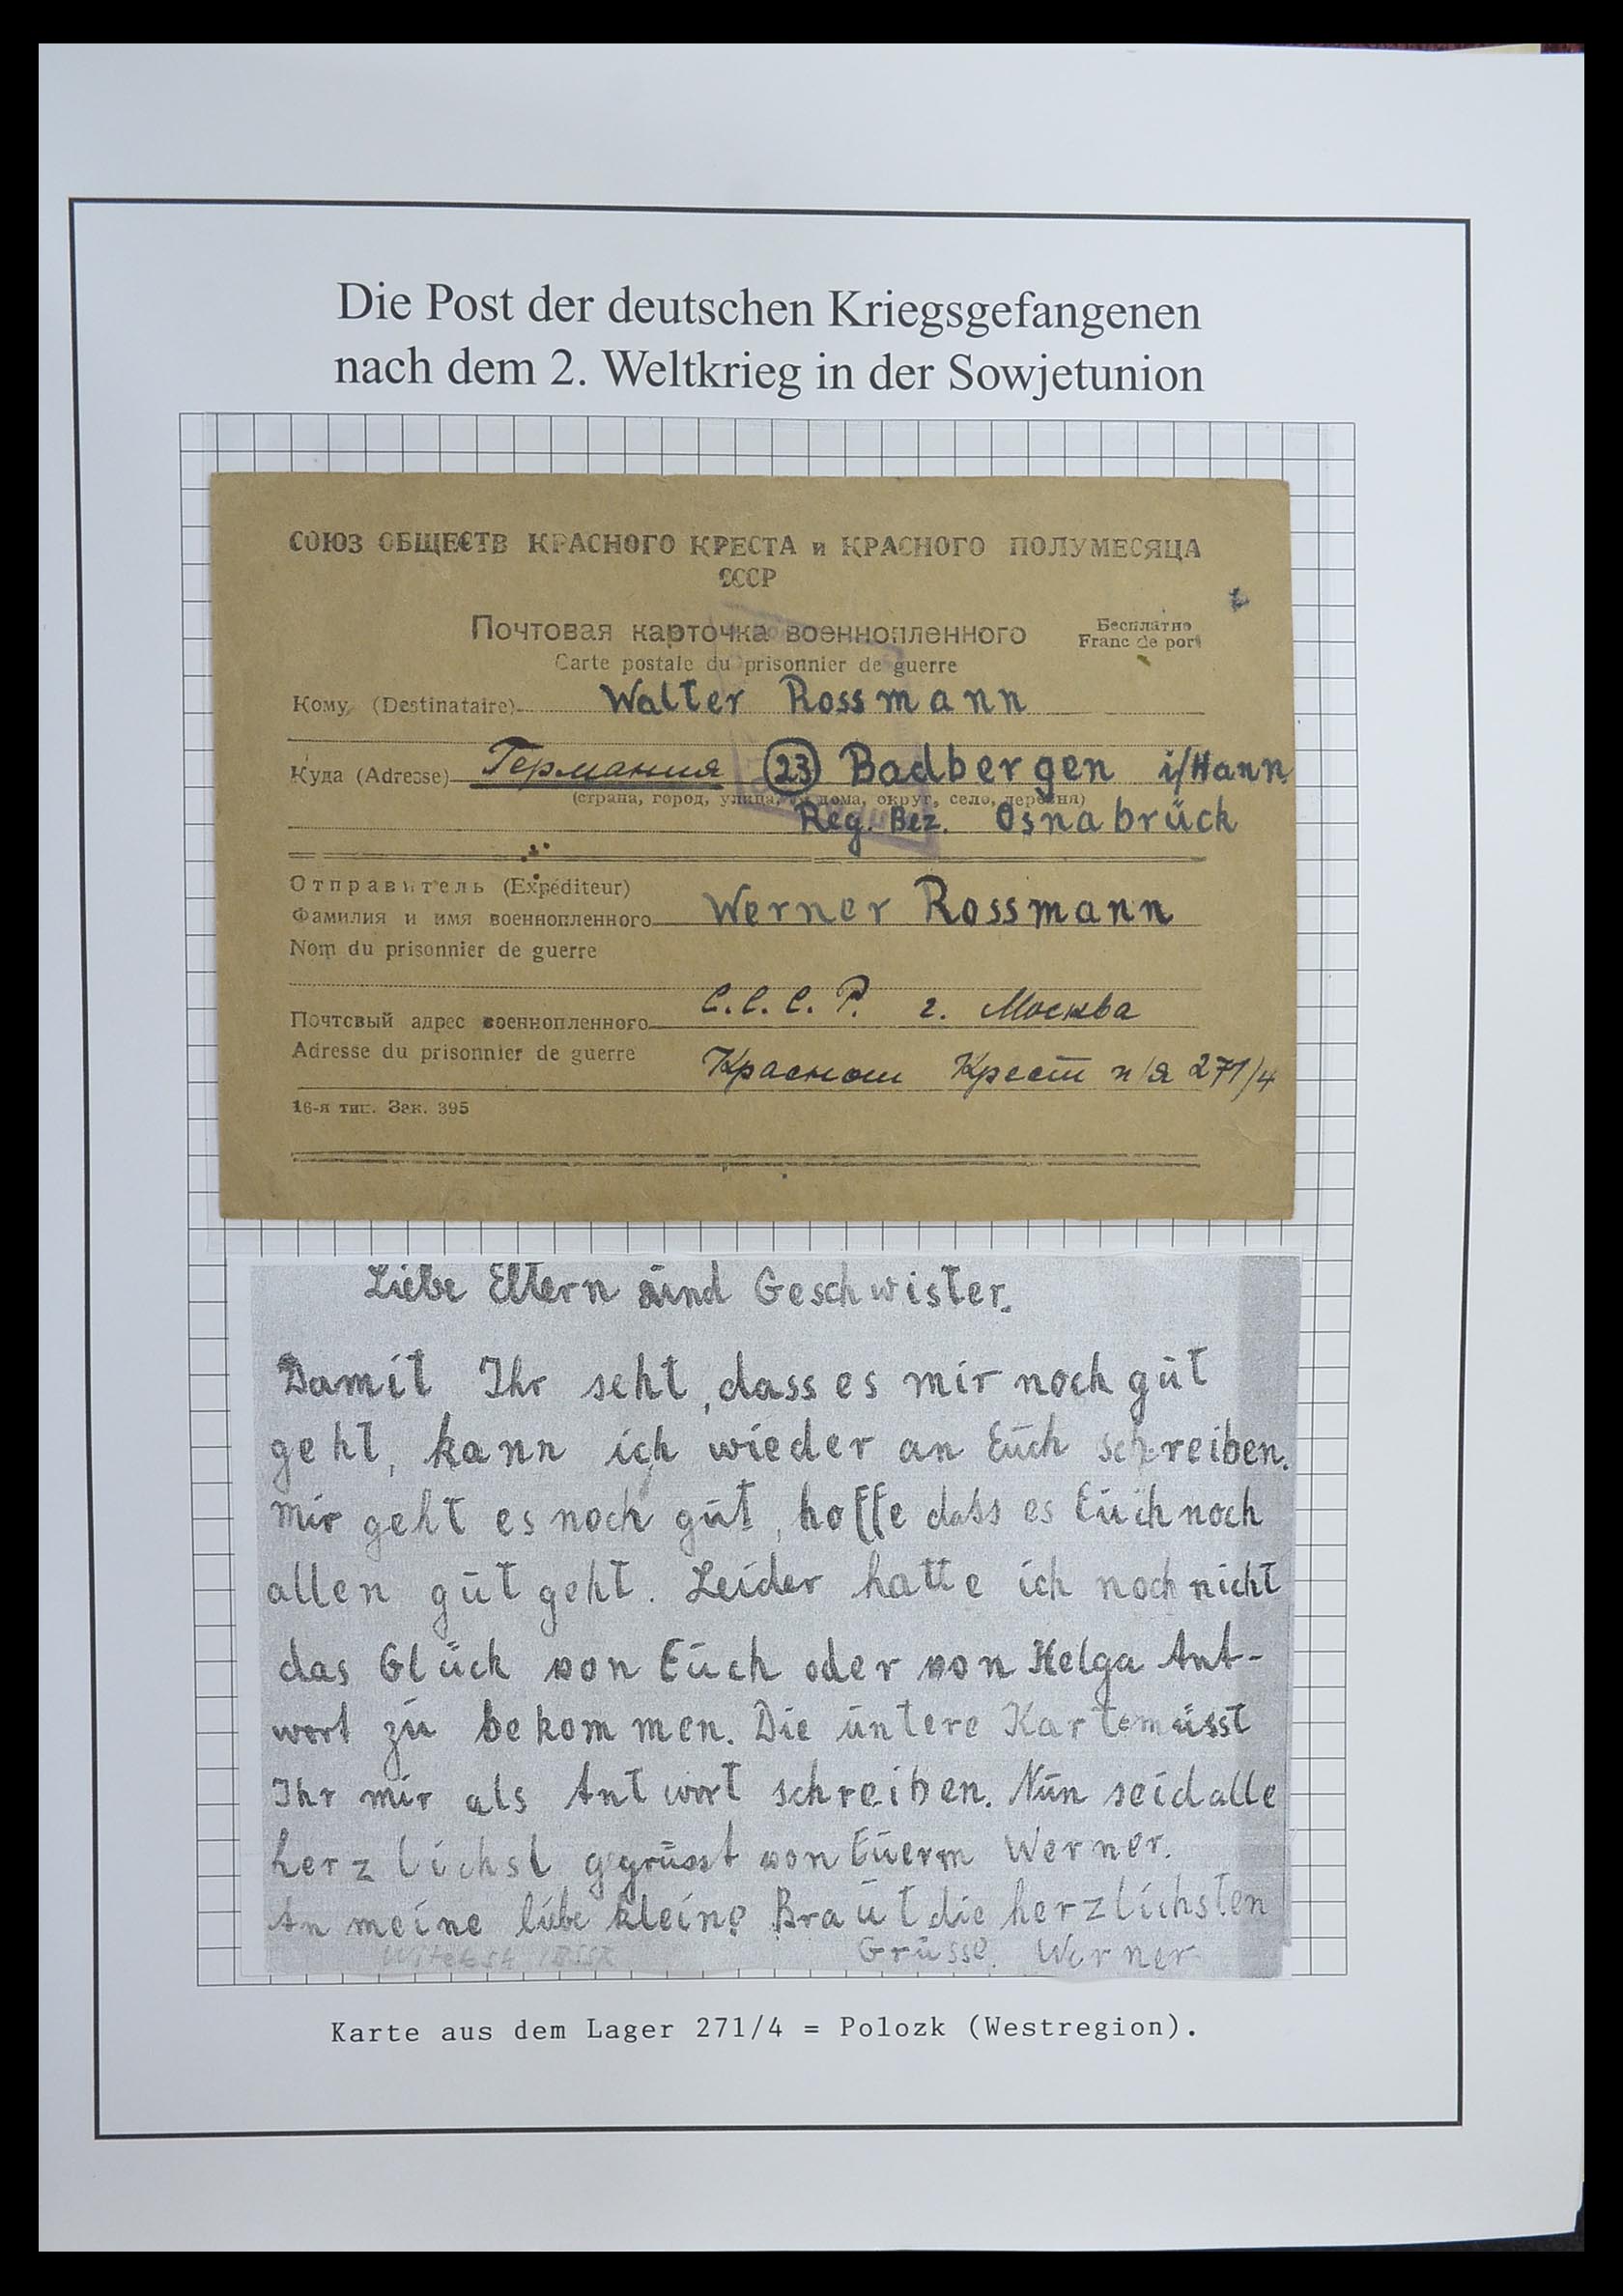 Die Post der deutschen Kriegsgefangenen
nach dem 2. Weltkrieg in der Sowjetunion
СОЮЗ ОБЩЕСТВ КРАСНОГО КРЕСТА и КРАСНОГО ПОЛУМЕСЯЦА
СССР
Почтовая карточка военнопленного
Бесплатно
Carte postale du prisonnier de guerre
Franc de port
Кому (Destinataire) Walter Rossmann
Куда (Adresse) Германия (23) Badbergen i/Hann.
(страна, город, улица, № дома, округ, село, деревня)
Reg. Bez. Osnabrück
Отправитель (Expéditeur)
Фамилия и имя военнопленного Werner Rossmann
Nom du prisonnier de guerre
Почтовый адрес военнопленного С.С.С.Р. г. Москва
Adresse du prisonnier de guerre Красной Крест п/я 271/4
16-я тип. Зак. 395
Liebe Eltern und Geschwister.
Damit Ihr seht, dass es mir noch gut
geht, kann ich wieder an Euch schreiben.
Mir geht es noch gut, hoffe dass es Euch noch
allen gut geht. Leider hatte ich noch nicht
das Glück von Euch oder von Helga Ant-
wort zu bekommen. Die untere Karte müsst
Ihr mir als Antwort schreiben. Nun seid alle
herzlichst gegrüsst von Euerm Werner.
An meine liebe kleine Braut die herzlichsten
Witebsk / BSSR Grüsse. Werner
Karte aus dem Lager 271/4 = Polozk (Westregion).